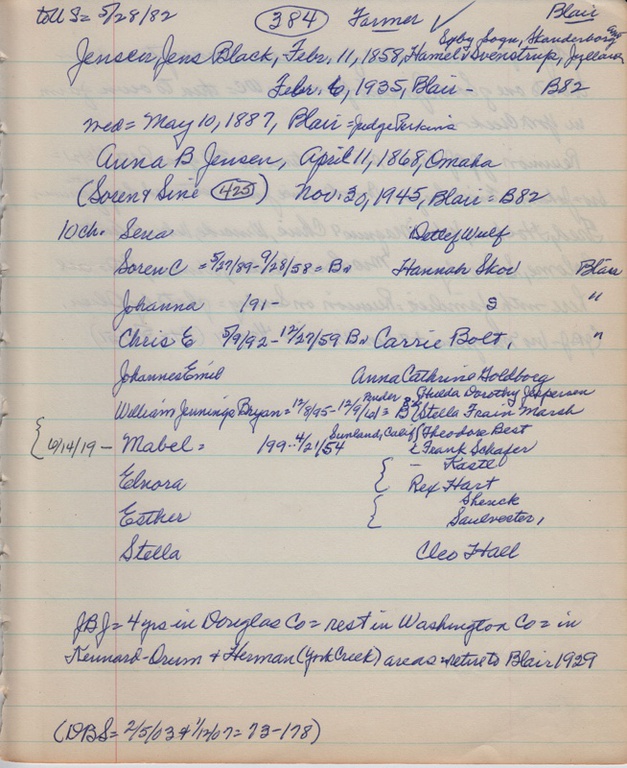 toll S = 5/28/82 (384) Farmer ✓ Blair
Egby Sogn, Skanderborg Amt
Jensen, Jens Black, Febr. 11, 1858, Hamel & Svenstrup, Jylland
Febr. 6, 1935, Blair - B82
med = May 10, 1887, Blair = Judge Perkins
Anna B Jensen, April 11, 1868, Omaha
(Soren & Sine (425)) Nov. 30, 1945, Blair = B82
10 ch. Sena Detlef Wulf
Soren C = 5/27/89 - 9/28/58 = Bv Hannah Skov Blair
Johanna 191- S "
Chris E 5/9/92 - 12/27/59 Bv Carrie Bolt, "
Johannes Emil Anna Cathrine Goldborg
Hulda Dorothy Jeppersen
William Jennings Bryan = 12/8/95 - 12/9/61 = B { Stella Frain Marsh
{ 6/14/19 - Mabel = 199 - 4/21/54 Sunland, Calif { Theodore Best
& Frank Schafer
Elnora { - Kastl
Rex Hart
Esther { Shenck
Stella Cleo Hall
JBJ = 4 yrs in Douglas Co = rest in Washington Co = in
Kennard - Orum & Herman (York Creek) areas = retire to Blair 1929
(DBS = 2/5/03 & 1/12/07 = 73-178)